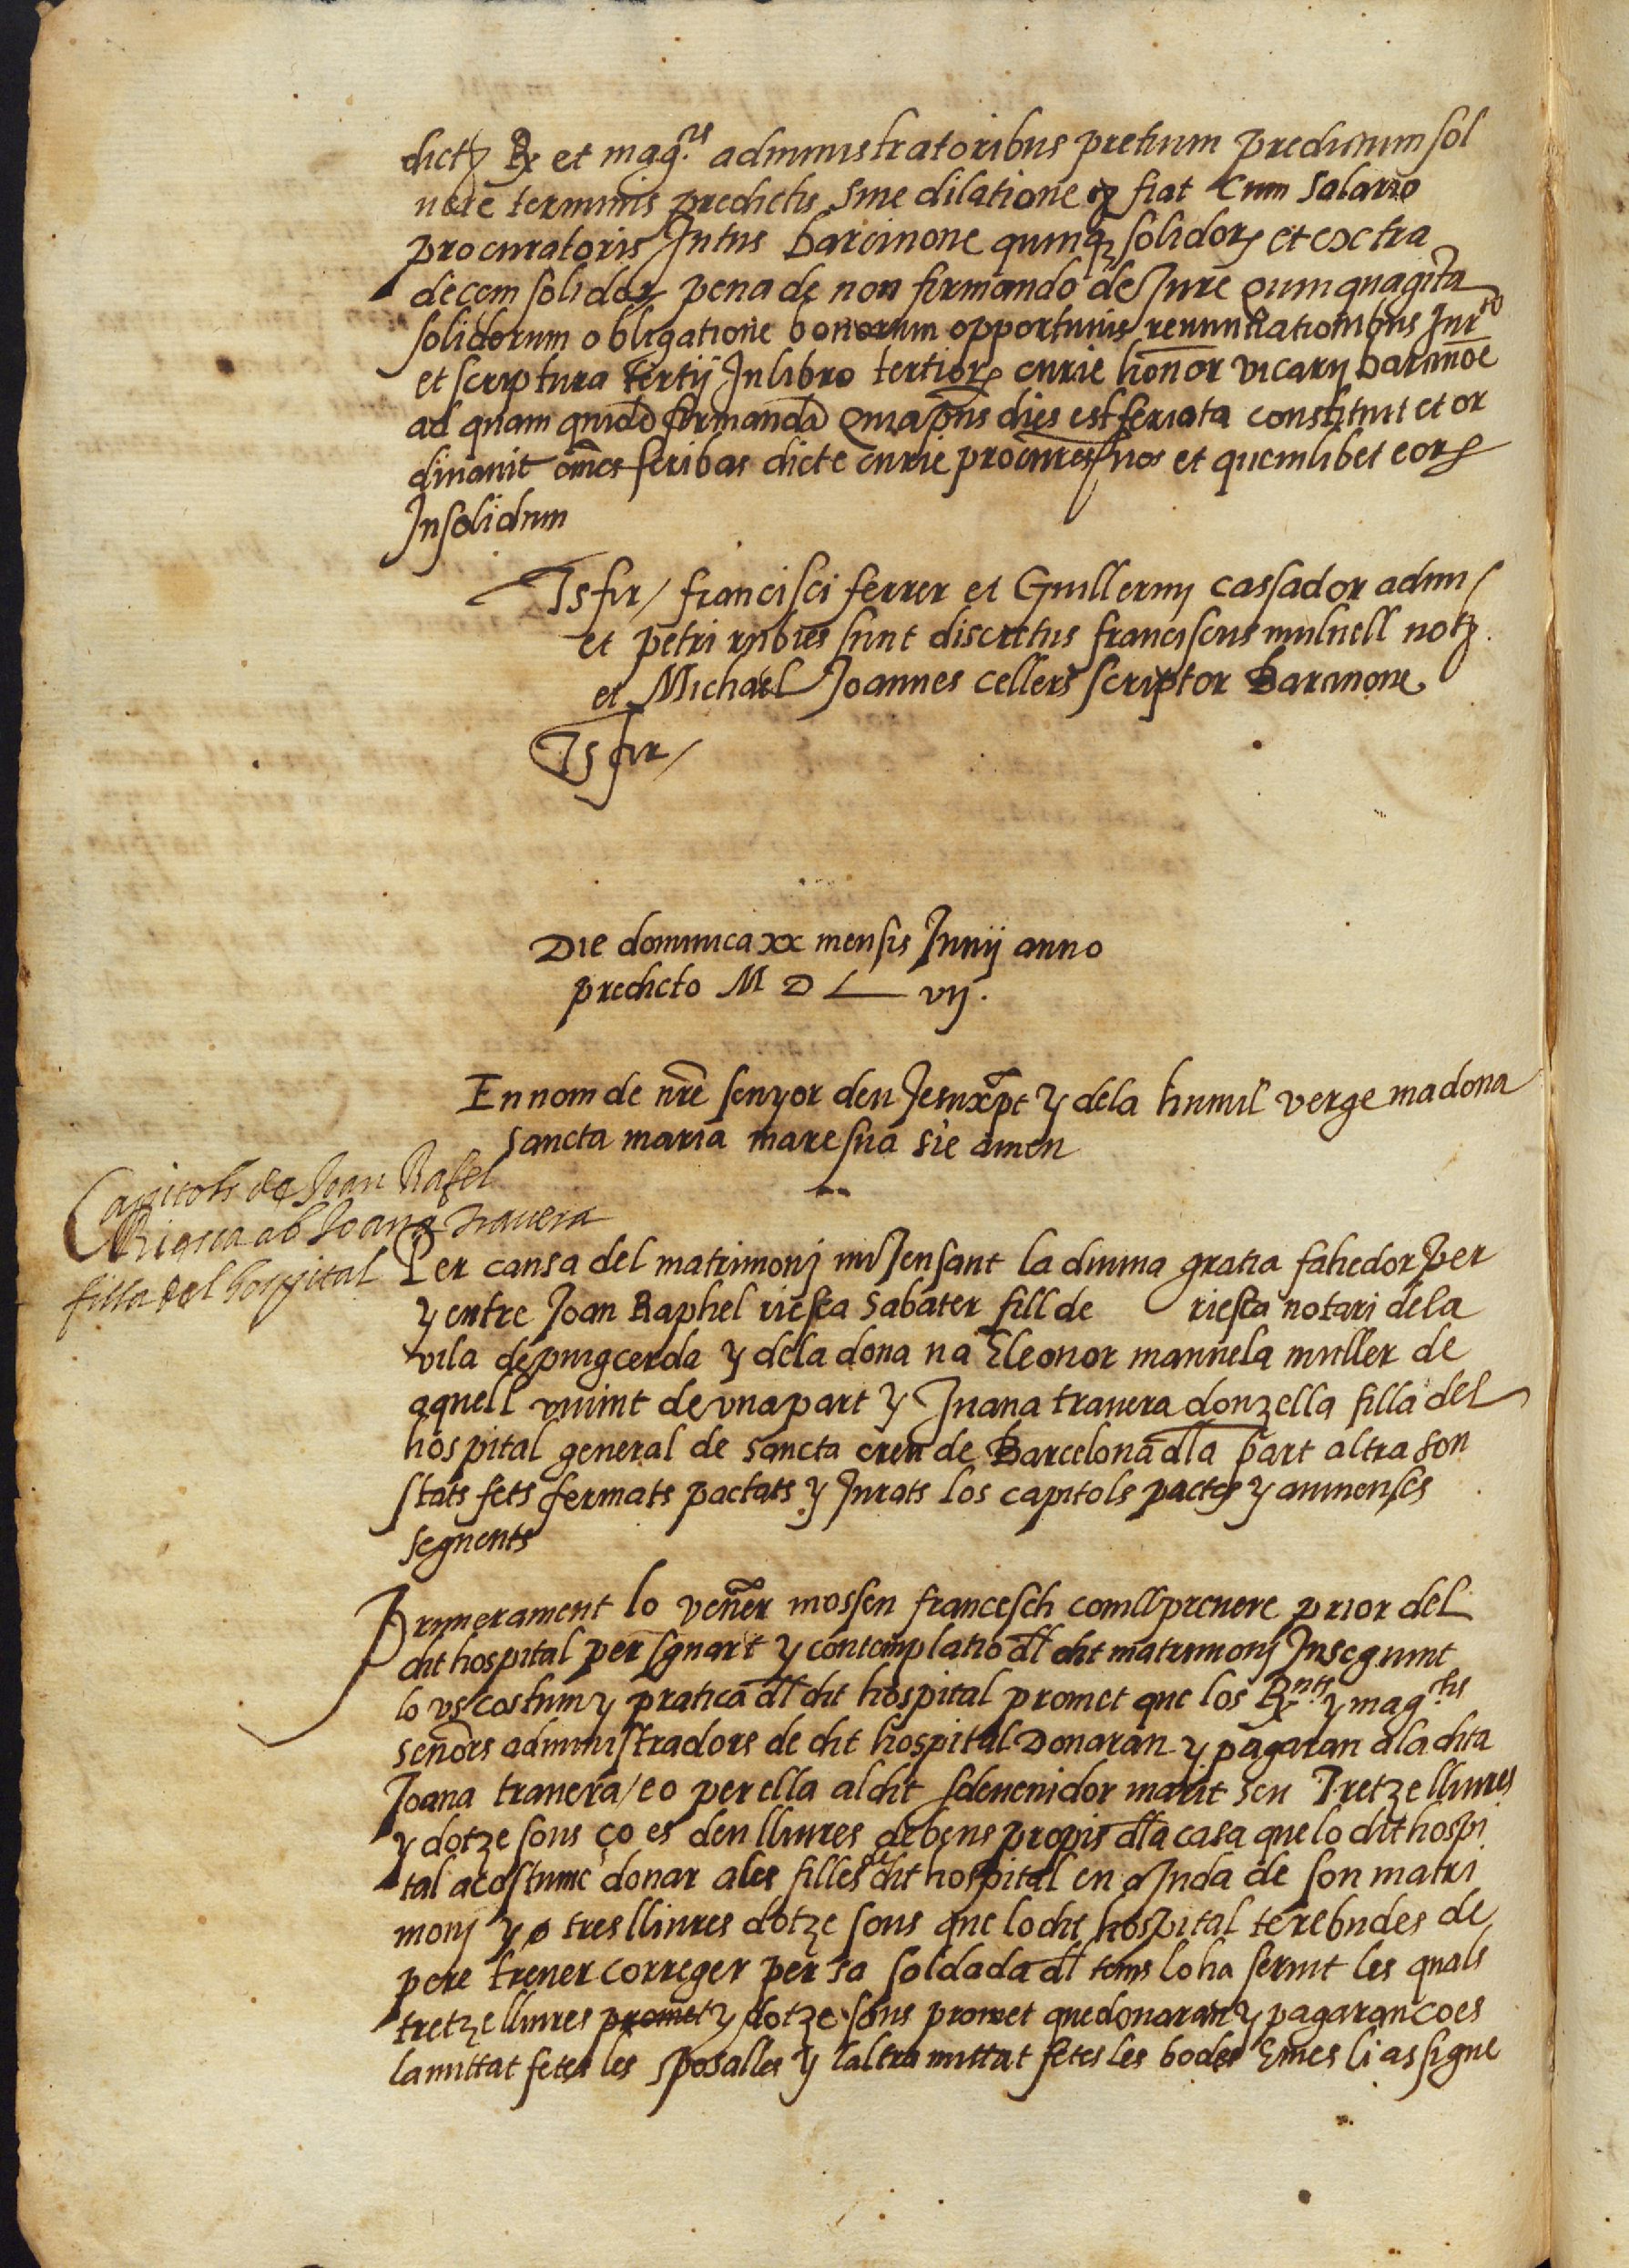 dictis R et magcis administratoribus pretium predictum sol
vere terminis predictis sine dilatione et fiat cum salario
procuratoris Intus barcinone quinq3 solidor et extra
decem solidor pena de non firmando de Jure quinquaginta
solidorum obligatione bonorum opportunis renuntiationibus Jurto
et scriptura tertij In libro tertior curie honor vicarij barcinoe
ad quam quide firmanda Quia pns dies est feriata constituit et or
dinavit omes scribas dicte curie procures suos et quemlibet eor
Insolidum
Ts fir / francisci ferrer et Guillermi cassador admi
et petri rubies sunt discretus franciscus mulnell not3.
et Michael Joannes cellers scriptor Barcinone
Ts fir /
Die dominica xx mensis Junij anno
predicto M D L vij.
En nom de nre senyor deu Jesuxpt y dela humil verge madona
sancta maria mare sua sie amen
Capitols de Joan Rafel
Riesca ab Joana travera
filla del hospital
Per causa del matrimonj mijensant la divina gratia fahedor per
y entre Joan Raphel riesca sabater fill de riesca notari dela
vila de puigcerda y dela dona na Eleonor manuela muller de
aquell vivint de una part y Juana travera donzella filla del
hospital general de sancta creu de Barcelona dla part altra son
stats fets fermats pactats y Jurats los capitols pactes y avinenses
seguents
Primerament lo vener mossen francesch comellprenere prior del
dit hospital per sguart y contemplatio dl dit matrimonj Inseguint
lo us costum y pratica dl dit hospital promet que los Rnts y magchs
senors administradors de dit hospital Donaran y pagaran ala dita
Joana travera / eo per ella al dit sdevenidor marit seu Tretze lliures
y dotze sous ço es deu lliures de bens propis dla casa que lo dit hospi
tal acostume donar a les filles de dit hospital en ajuda de son matri
monj y tres lliures dotze sous que lo dit hospital te rebudes de
pere trener correger per sa soldada dl temps lo ha servit les quals
tretze lliures promet y dotze sous promet que donaran y pagaran ço es
la mittat fetes les sposalles y laltra mittat fetes les bodes E mes li assigne